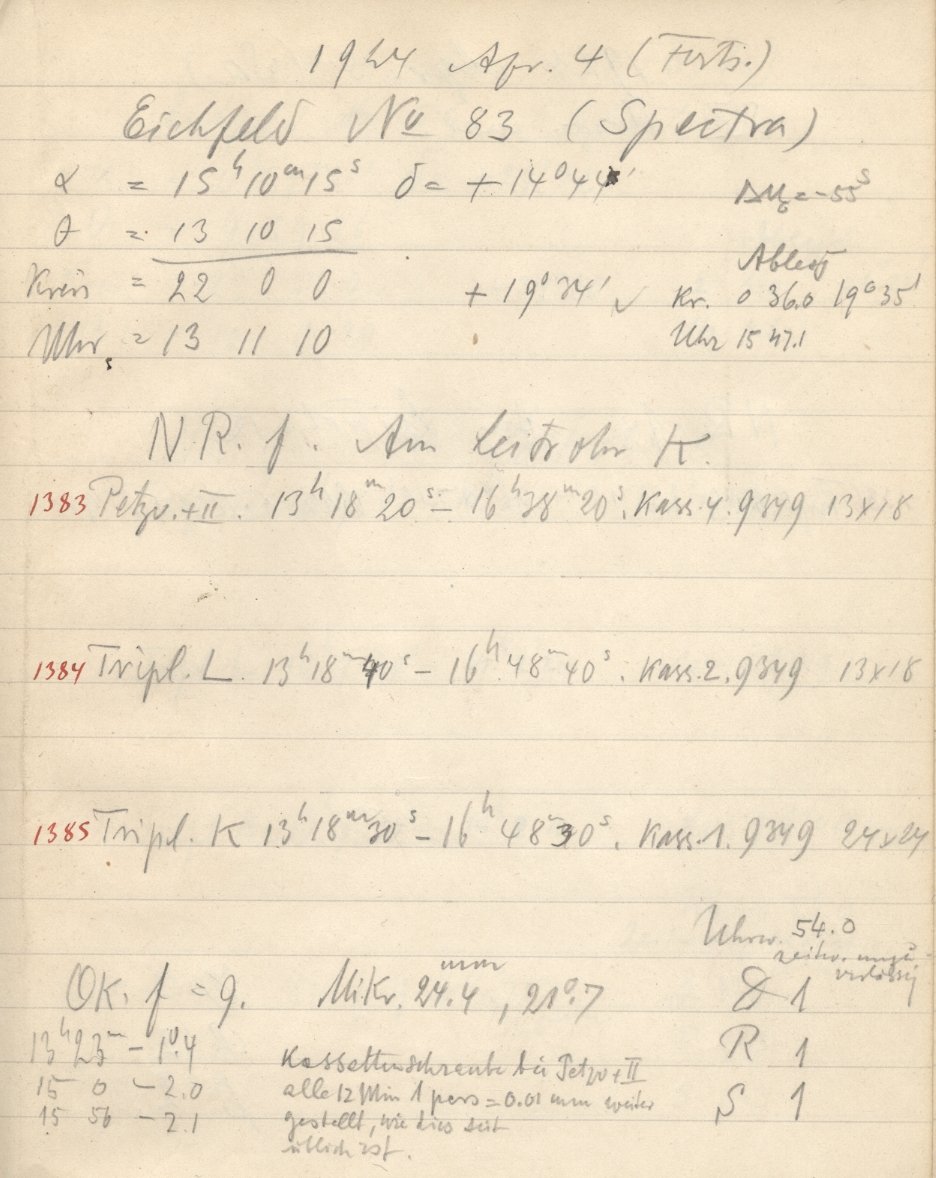 1924 Apr. 4 (Forts.)
Eichfeld No 83 (Spectra)
α = 15ʰ10ᵐ15ˢ δ = +14°44' ΔU = -55ˢ
θ = 13 10 15
Ablesg
Kreis = 22 0 0 +19°34' ✓ Kr. 0 36.0 19°35'
Uhr = 13 11 10 Uhr 15 47.1
N.R. f. Am Leitrohr K.
1383 Petzv.+II. 13ʰ18ᵐ20ˢ – 16ʰ38ᵐ20ˢ. Kass.4. 9349 13x18
1384 Tripl. L. 13ʰ18ᵐ40ˢ – 16ʰ48ᵐ40ˢ. Kass.2. 9349 13x18
1385 Tripl. K 13ʰ18ᵐ30ˢ – 16ʰ48 30ˢ. Kass.1. 9349 24x24
Uhrw. 54.0
zeitw.
OK. f = 9. Mikr. 24.4 mm, 21°.7 1
13ʰ23ᵐ – 1°.4 R 1
Kassettenschraube bei Petzv+II
15 0 – 2.0 alle 12 Min 1 pars = 0.01 mm weiter S 1
15 56 – 2.1 gestellt, wie dies seit
üblich ist.